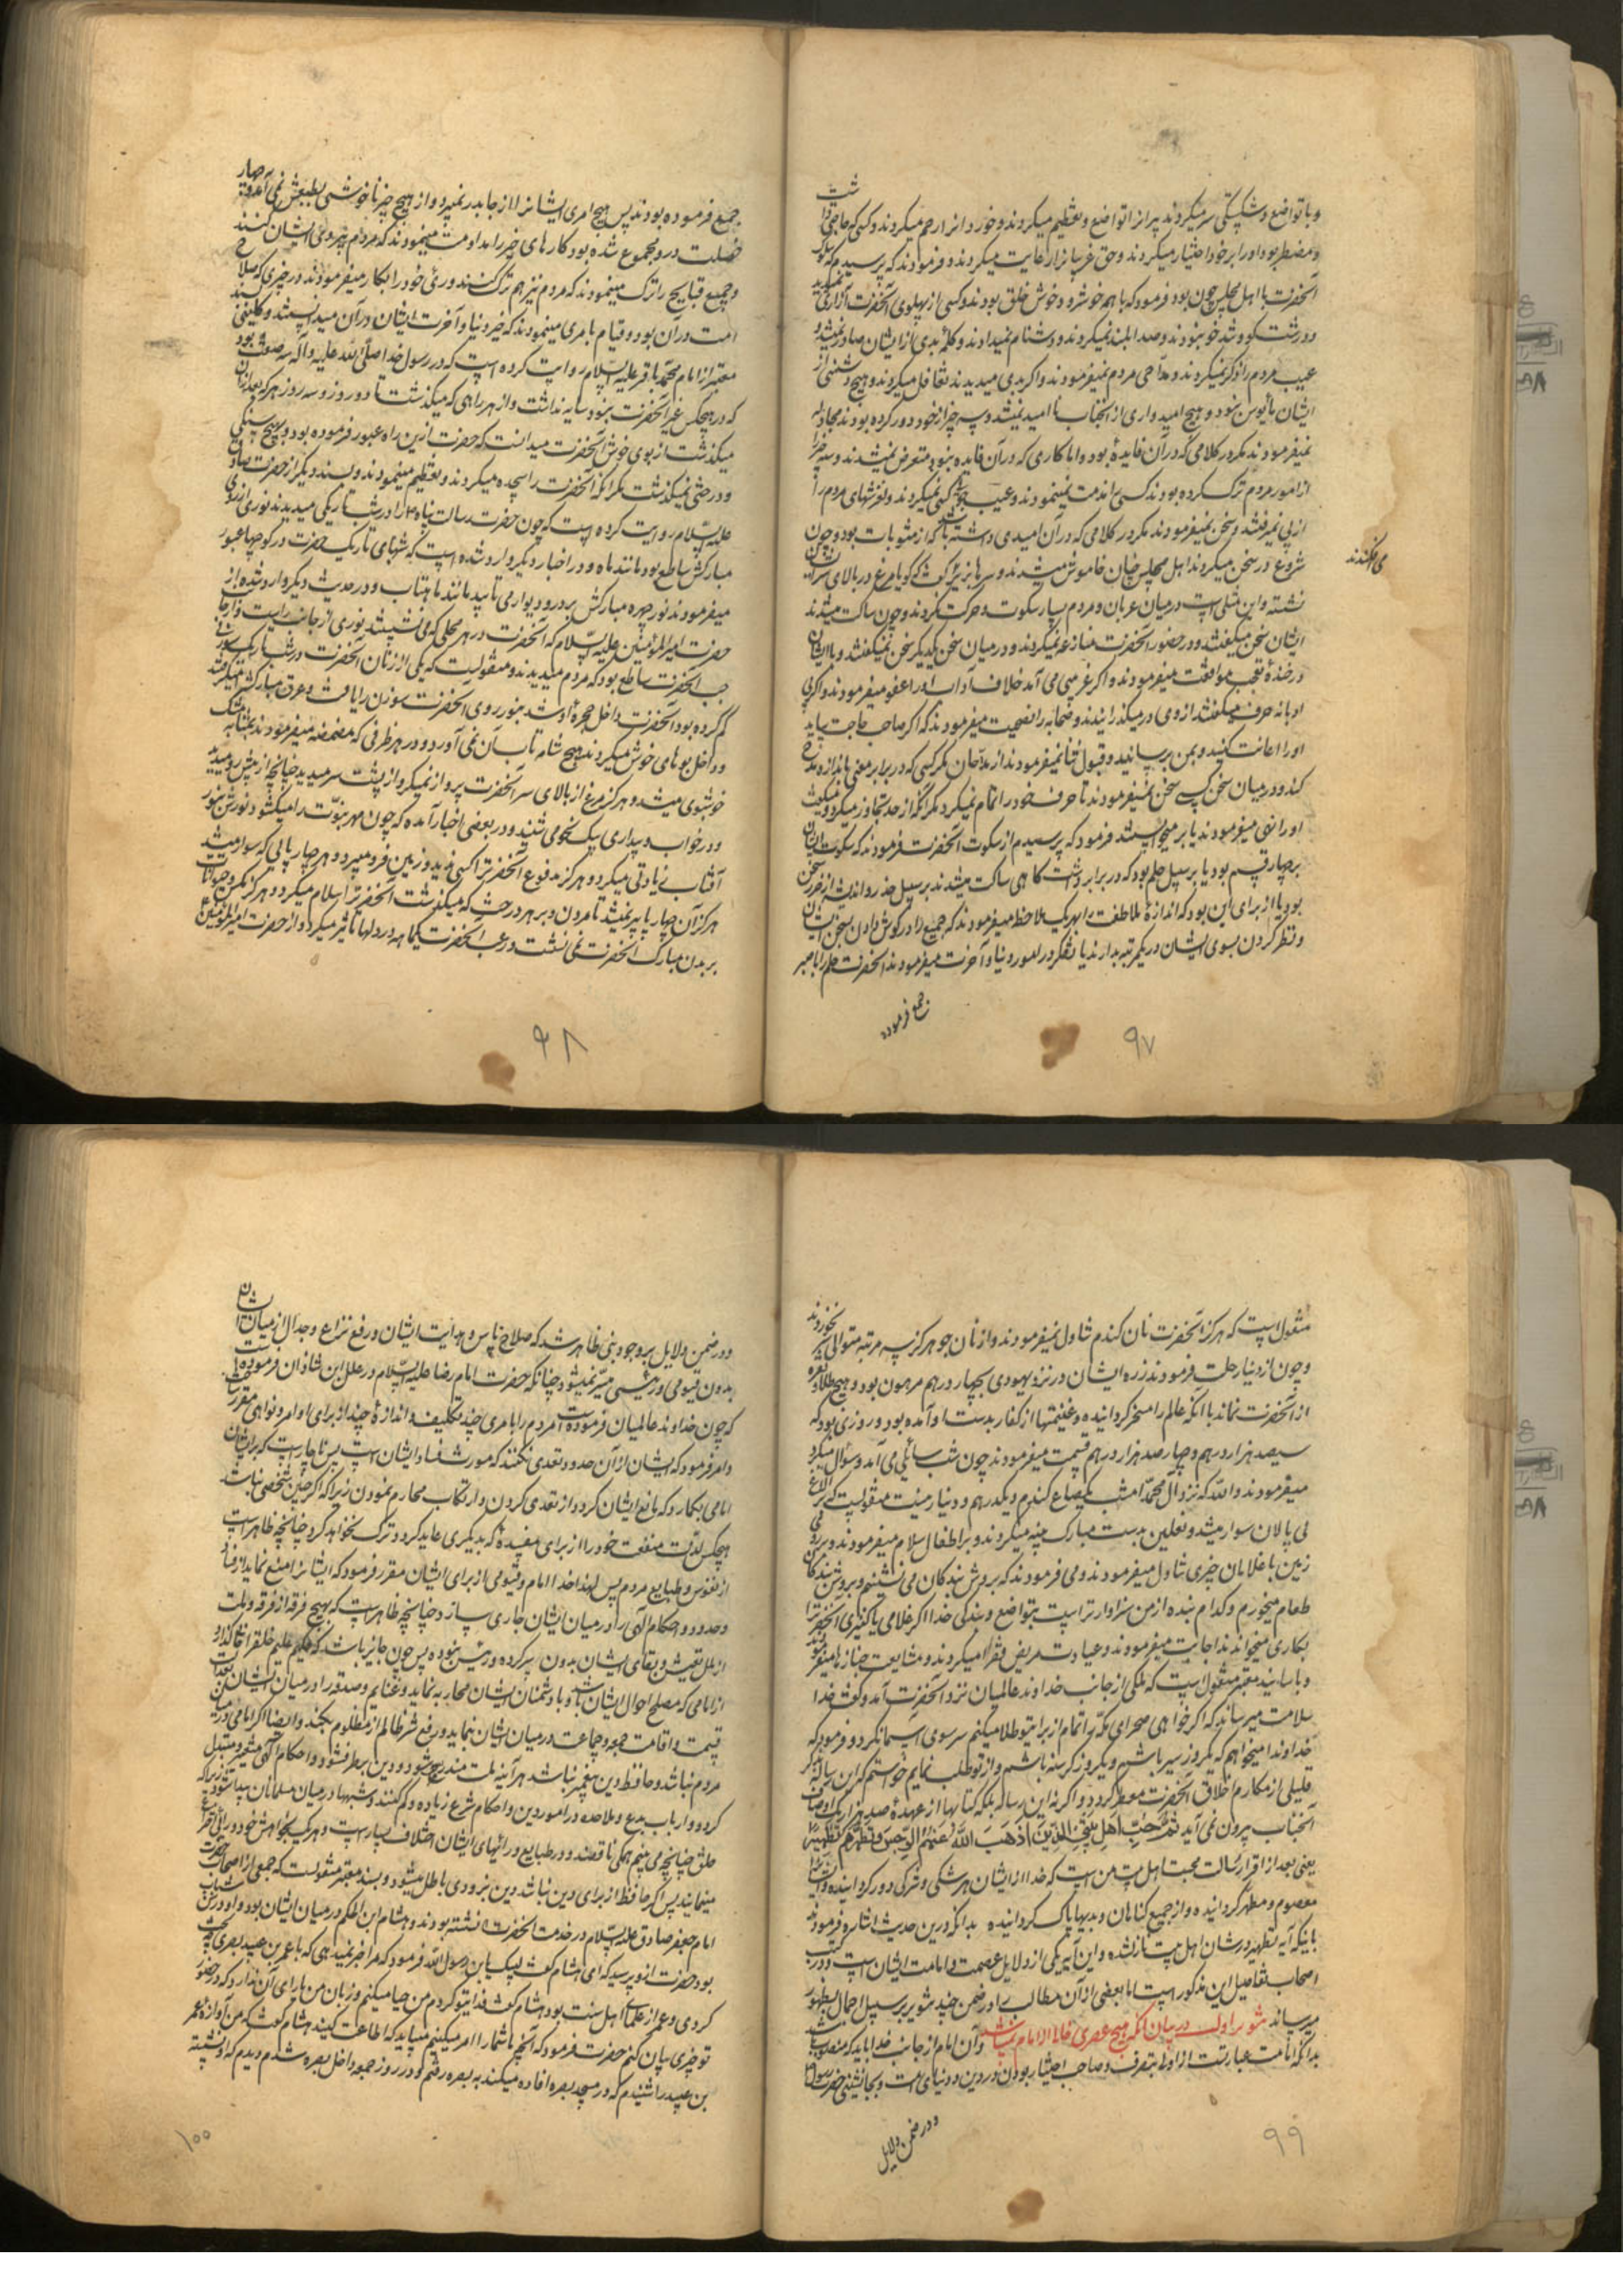 و با تواضع و شکستگی سر میکردند پیرانرا تواضع و تعظیم میکردند و خوردانرا رحم میکردند و کسی که حاجتی داشت
و مضطر بود او را بر خود اختیار میکردند و حق غریبانرا رعایت میکردند و فرمودند که پرسیدم که سلوک
آنحضرت با اهل مجلس چون بود فرمود که با همه خوشرو و خوش خلق بودند و کسی از پهلوی آنحضرت آزاری نمیکشید
و درشت گو و تند خو نبودند و صدا بلند نمیکردند و دشنام نمیدادند و کلمه بدی از ایشان صادر نمیشد و
عیب مردم را ذکر نمیکردند و مداحی مردم نمیفرمودند و اگر بدی میدیدند تغافل میکردند و هیچ دشمنی از
ایشان مأیوس نبود و هیچ امیدواری از آنجناب ناامید نمیشد و سه چیز از خود دور کرده بودند مجادله
نمیفرمودند مگر در کلامی که در آن فایدۀ بود و اما کاری که در آن فایده نبود متعرض نمیشدند و سه چیز را
از امور مردم ترک کرده بودند کسی را مذمت نمینمودند و عیب جوئی کسی نمیکردند و لغزشهای مردم را
از پی نمیرفتند و سخن نمیفرمودند مگر در کلامی که در آن امیدی داشته باشند که از مثوبات بود و چون
شروع در سخن میکردند اهل مجلس چنان خاموش میشدند و سرها بزیر که گویا مرغ در بالای سر ایشان
می افکندند
نشسته و این مثلی است در میان عربان و مردم بسیار سکوت و حرکت نکردند و چون ساکت میشدند
ایشان سخن میگفتند و در حضور آنحضرت منازعه نمیکردند و در میان سخن یکدیگر سخن نمیگفتند و با ایشان
در خنده و تعجب موافقت میفرمودند و اگر غریبی می آمد خلاف آداب او را عفو میفرمودند و اگر بی
ادبانه حرف میگفتند از وی در میگذرانیدند و صحابه را نصیحت میفرمودند که اگر صاحب حاجت بیاید
او را اعانت کنید و بمن برسانید و قبول ثنا نمیفرمودند از مداحان مگر کسی که در برابر نعمتی باندازه مدح
کند و در میان سخن کسی سخن نمیفرمودند تا حرف خود را تمام نمیکرد مگر آنکه از حد تجاوز میکرد و میگفت
او را نهی میفرمودند یا بر میخواستند فرمود که پرسیدم از سکوت آنحضرت فرمودند که سکوت ایشان
بر چهار قسم بود یا بر سبیل حلم بود که در برابر درشت گاهی ساکت میشدند بر سبیل حذر و اندیشه از ضرر سخن
بود یا از برای این بود که اندازۀ ملاطفت را بهر یک ملاحظه میفرمودند که جمیع را در گوش دادن بسخن ایشان
و نظر کردن بسوی ایشان در یک مرتبه بدارند یا تفکر در امور دنیا و آخرت میفرمودند آنحضرت حلم را با صبر
جمع فرموده
۹۷
جمیع فرموده بودند پس هیچ امری ایشانرا از جا بدر نمیبرد و از هیچ چیز ناخوشی بطبعش نمی آمد و چهار
خصلت در و مجموع شده بود کارهای خیر را مداومت مینمودند که مردم پیروی ایشان کنند
و جمیع قبایح را ترک مینمودند که مردم نیز هم ترک کنند و رئی خود را بکار میفرمودند در چیزی که صلاح
امت در آن بود و قیام بامری مینمودند که خیر دنیا و آخرت ایشان در آن میدانستند و کلینی بسند
معتبر از امام محمد باقر علیه السلام روایت کرده است که در رسول خدا صلی الله علیه و آله سه صفت بود
که در هیچکس غیر آنحضرت نبود سایه نداشت و از هر راهی که میگذشت تا دو روز و سه روز هر که بعد از آن
میگذشت از بوی خوش آنحضرت میدانست که حضرت ازین راه عبور فرموده بود و بهیچ سنگی
و درختی نمیگذشت مگر آنکه آنحضرت را سجده میکردند و تعظیم مینمودند و بسند دیگر از حضرت صادق
علیه السلام روایت کرده است که چون حضرت رسالت پناه را در شب تاریکی میدیدند نوری از روی
مبارکش ساطع بود مانند ماه و در اخبار دیگر وارد شده است که شبهای تاریک حضرت در کوچها عبور
میفرمودند نور چهره مبارکش بر در و دیوار می تابید مانند ماهتاب و در حدیث دیگر وارد شده از
حضرت امیر المؤمنین علیه السلام که آنحضرت در هر محلی که می نشستند نوری از جانب راست و از جا
جب آنحضرت ساطع بود که مردم میدیدند و منقولست که یکی از زنان آنحضرت در شب تاریک سوزنی
گم کرده بود آنحضرت داخل حجرۀ او شد بنور روی آنحضرت سوزن را یافت و عرق مبارکش میگرفتند
و داخل بوهای خوش میکردند هیچ شامه تاب آن نمی آورد و در هر ظرفی که مضمضه میفرمودند بمثابه مشک
خوشبوی میشد و هرگز مرغ از بالای سر آنحضرت پرواز نمیکرد و از پشت سر میدید چنانچه از پیش رو میدید
و در خواب و بیداری یک نحو می شنید و در بعضی اخبار آمده که چون مهر نبوت را میگشود نورش بنور
آفتاب زیادتی میکرد و هرگز مدفوع آنحضرترا کسی ندید و زمین فرو میبرد و هر چارپائی که سوار میشد
هرگز آن چهارپا پیر نمیشد تا مردن و بر هر درخت که میگذشت آنحضرترا سلام میکرد و هرگز مگس و حیوانات
بر بدن مبارک آنحضرت نمی نشست و رعب آنحضرت یکماهه در دلها تأثیر میکرد و از حضرت امیر المؤمنین
۹۸
منقول است که هرگز آنحضرت نان گندم تناول نمیفرمودند و از نان جو هرگز سه مرتبه متوالی سیر نخوردند
و چون از دنیا رحلت فرمودند زره ایشان در نزد یهودی بچهار درهم مرهون بود و هیچ طلا و نقره
از آنحضرت نماند با آنکه عالم را مسخر گردانیده و غنیمتها از کفار بدست او آمده بود و روزی بود که
سیصد هزار درهم و چهار صد هزار درهم قسمت میفرمودند چون شب سائلی می آمد و سؤال میکرد
میفرمودند و الله که نزد آل محمد امشب یکصاع گندم و یکدرهم و دینار نیست منقولست که بر الاغ
بی پالان سوار میشد و نعلین بدست مبارک پینه میکردند و بر اطفال سلام میفرمودند و بر روی
زمین با غلامان چیزی تناول میفرمودند و می فرمودند که بروش بندگان می نشینم و بروش بندگان
طعام میخورم و کدام بنده از من سزاوارتر است بتواضع و بندگی خدا اگر غلامی یا کنیزی آنحضرترا
بکاری میخواندند اجابت میفرمودند و عیادت مریض فقرا میکردند و مشایعت جنازها میفرمودند
و باسانید معتبر منقول است که ملکی از جانب خداوند عالمیان نزد آنحضرت آمد و گفت خدا
سلامت میرساند که اگر خواهی صحرای مکه را تمام از برای تو طلا میکنم سر سوی آسمان کرد و فرمود که
خداوندا میخواهم که یکروز سیر باشم و یکروز گرسنه باشم و از تو طلب نمایم خواستم که این رساله بذکر
قلیلی از مکارم اخلاق آنحضرت معطر گردد و اگر نه این رساله بلکه کتابها از عهدۀ صد هزار یک اوصاف
آنجناب بیرون نمی آید ثم حب اهل بیتی الذین اذهب الله عنهم الرجس و تطهرهم تطهیرا
یعنی بعد از اقرار رسالت محبت اهل بیت من است که خدا از ایشان هر شکی و شرکی دور گردانیده و ایشانرا
معصوم و مطهر گردانیده و از جمیع گناهان و بدیها پاک گردانیده بدانکه درین حدیث اشاره فرمودند
باینکه آیه تطهیر در شان اهل بیت نازل شده و این آیه یکی از دلایل عصمت و امامت ایشان است و در کتب
اصحاب تفاصیل این مذکور است اما بعضی از آن مطالب را در ضمن چند تنویر بر سبیل اجمال بظهور
میرساند تنویر اول در بیان آنکه هیچ عصری خالی از امام نمیباشد و آن امام از جانب خدا باید که منصوب باشد
بدانکه امامت عبارتست از اولی بتصرف و صاحب اختیار بودن در دین و دنیای امت و بجانشینی حضرت رسول
و در ضمن دلایل
۹۹
و در ضمن دلایل بر وجود نبی ظاهر شد که صلاح ناس و هدایت ایشان و رفع نزاع و جدال از میان ایشان
بدون قیومی و رئیسی میسر نمیشود چنانکه حضرت امام رضا علیه السلام در علل ابن شاذان فرموده است
که چون خداوند عالمیان فرموده است مردم را بامری چند تکلیف و اندازۀ چند از برای اوامر و نواهی مقرر ساخت
و امر فرمود که ایشان از آن حدود تعدی نکنند که مورث فساد ایشان است پس ناچار است که بر ایشان
امامی بگمارد که مانع ایشان گردد از تعدی کردن و ارتکاب محارم نمودن زیرا که اگر چنین شخصی نباشد
هیچکس لذت و منفعت خود را از برای مفسدۀ که بدیگری عاید گردد ترک نخواهد کرد چنانچه ظاهر است
از نفوس و طبایع مردم پس لهذا خدا امام و قیومی از برای ایشان مقرر فرمود که ایشانرا منع نماید از فساد
و حدود و احکام الهی را در میان ایشان جاری سازد چنانچه ظاهر است که بهیچ فرقه از فرقه و ملت
از ملل تعیش و بقای ایشان بدون سر کرده و رئیس نبوده پس چون جایز باشد که حکیم علیم خلق را خالی گذارد
از امامی که مصلح احوال ایشان باشد و با دشمنان ایشان محاربه نماید و غنایم و صدقه را در میان ایشان بعدالت
قسمت و اقامت جمعه و جماعت در میان ایشان بنماید و رفع شر ظالم از مظلوم بکند و ایضا اگر امامی در میان
مردم نباشد و حافظ دین پیغمبر نباشد هر آینه ملت مندرس شود و دین برطرف شود و احکام الهی متغیر و متبدل
گردد و ارباب بدع و ملاحده در امور دین و احکام شرع زیاده و کم کنند و شبهها در میان مسلمانان پیدا شود زیرا که
خلق چنانچه می بینم همگی ناقصند و در طبایع و رائهای ایشان اختلاف بسیار است و هر یک بخواهش خود در رائی اختراع
مینمایند پس اگر حافظ از برای دین نباشد دین بزودی باطل میشود و بسند معتبر منقولست که جمعی از اصحاب حضرت
امام جعفر صادق علیه السلام در خدمت آنحضرت نشسته بودند و هشام ابن الحکم در میان ایشان بود و او در سن شباب
بود حضرت ازو پرسید که ای هشام گفت لبیک یا بن رسول الله فرمود که مرا خبر نمیدهی که با عمر بن عبید بصری چه بحث
کردی و عمر از علمای اهل سنت بود هشام گفت فدای تو گردم من حیا میکنم و زبان من یارای آن ندارد که در حضور
تو چیزی بیان کنم حضرت فرمود که آنچه ما شما را امر میکنیم میباید که اطاعت کنید هشام گفت که من آوازۀ عمر
بن عبید را شنیدم که در مسجد بصره افاده میکند به بصره رفتم و در روز جمعه داخل بصره شدم و دیدم که او نشسته
۱۰۰